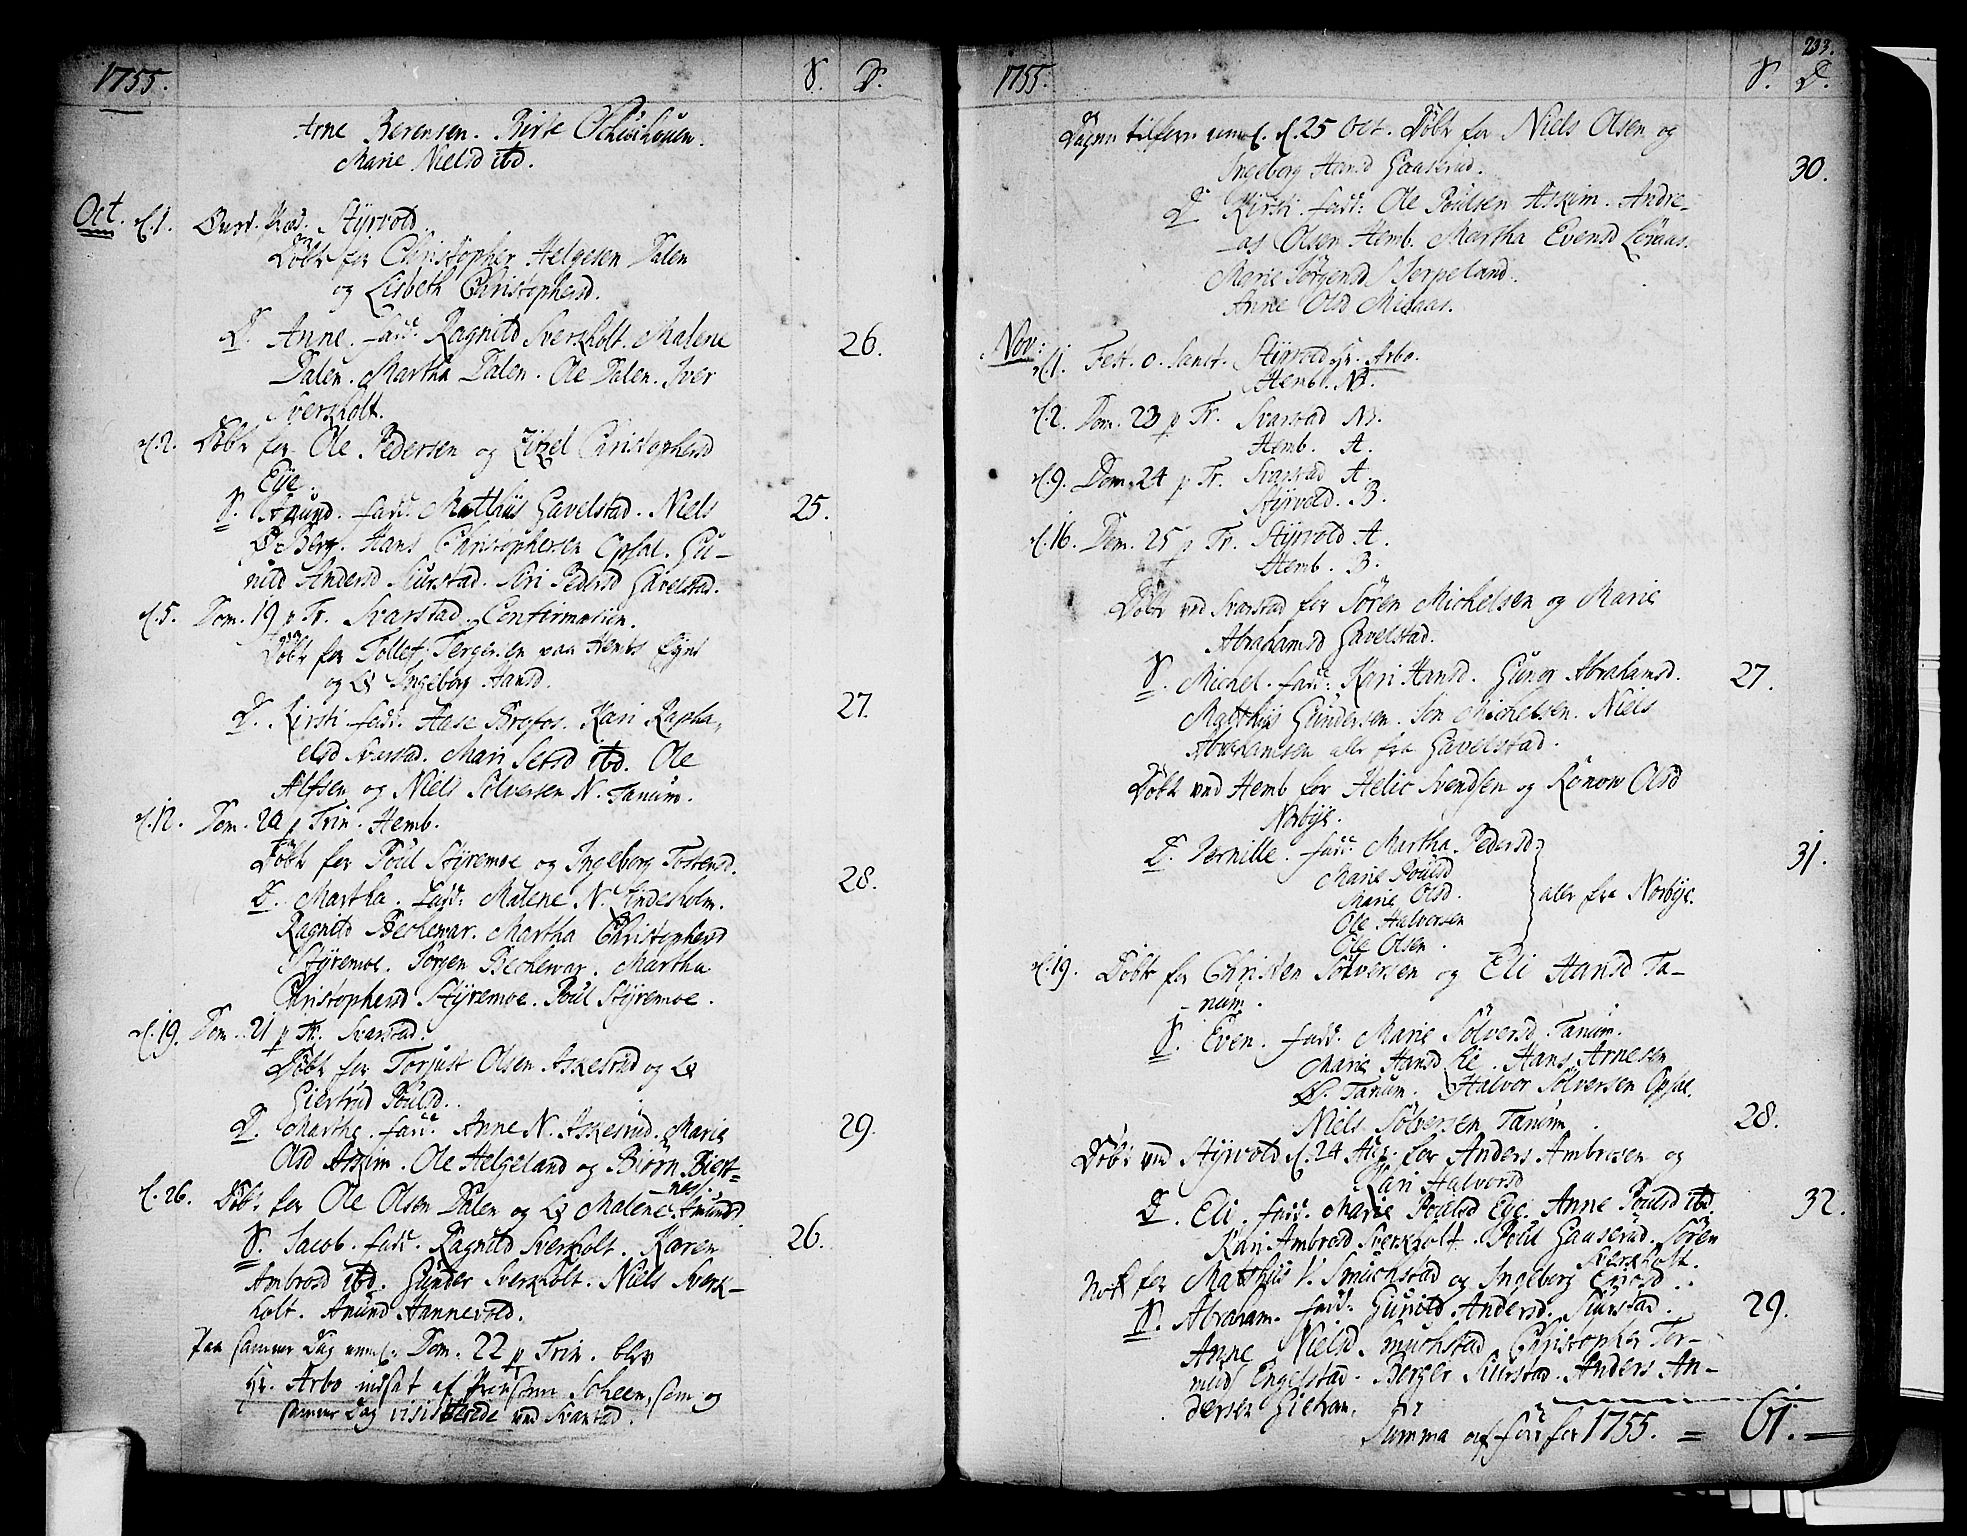 1755. S. D.
Arne Berensen. Birte
Marie Nielsd ibd.
Oct. d. 1. Styrvold
Döbt for Christopher Helgesen Dalen
og Lisbeth Christophersd.
D. Anne. fadd: Ragnild Sverkholt. Malene 26.
Dalen. Martha Dalen. Ole Dalen. Iver
Sverkholt.
d. 2. Döbt for Ole Pedersen og Zitzel Christophersd
Eye.
S. Amund. fadd: Matthis Gavelstad. Niels 25.
Berg. Hans Christophersen Opsal. Gu-
nild Andersd Siurstad. Siri Pedersd Gavelstad.
d. 5. Dom. 19 p Tr. Svarstad. Confirmation.
Döbt for Tollef Tergersen paa Hembs
og Ingeborg Hansd.
D. Kirsti fadd: Aase Brofos. Kari Rapha-
elsd Sverstad. Mari ibd. Ole 27.
Alfsen og Niels Sölversen N. Tanum.
d. 12. Dom. 20 p Trin. Hemb.
Döbt for Poul Styremoe og Ingeborg Tostensd.
D. Martha. Fadd: Malene N. Lindeholm. 28.
Ragnild Beckewar. Martha Christophersd
Styremoe. Jörgen Beckewar. Martha
Christophersd Styremoe. Poul Styremoe.
d. 19. Dom. 21 p Tr. Svarstad.
Döbt for Torjust Olsen Askerud og
Giertrud Poulsd.
D. Marthe. fadd: Anne N. Askerud. Marie 29.
Olsd Askim. Ole Helgeland og Biörn Biert-
nes.
d. 26. Döbt for Ole Olsen Dalen og Malene Amunds.
S. Jacob. fadd: Ragnild Sverkholt. Karen 26.
Ambrosd ibd. Gunder Sverkholt. Niels Sverk-
holt. Amund Hannevold.
Paa samme Dag Dom. 22 p Trin. blev
Hr. Arbo indsat af Scheen, som og
samme Dag visiterede ved Svarstad.
1755. S. D. 233.
d. 25 Oct. Döbt for Niels Olsen og
Ingeborg Hansd Gaaserud. 30.
D. Kirsti. fadd: Ole Poulsen Askim. Andre-
as Olsen Hemb. Martha Evensd
Marie Jörgensd Herpeland.
Anne Olsd Midaas.
Nov: d. 1. Fest. o. Sanct. Styrvold Hr. Arbo.
Hemb.
d. 2. Dom. 23 p Tr. Svarstad
Hemb. A.
d. 9. Dom. 24 p Tr. Svarstad A.
Styrvold. B.
d. 16. Dom. 25 p Tr. Styrvold A.
Hemb. B.
Döbt ved Svarstad for Sören Michelsen og Marie
Abrahamsd Gavelstad.
S. Michel. fadd: Kari Hansd. Gunor Abrahamsd. 27.
Matthis Gundersen. Michelsen. Niels
Abrahamsen alle fra Gavelstad.
Döbt ved Hemb for Helie Svendsen og Rönow Olsd
Norbye.
D. Pernille. fadd: Martha Pedersd 31.
Marie Poulsd
Marie Olsd. alle fra Norbye.
Ole Halversen
Ole Olsen.
d. 19. Döbt for Christen Sölversen og Eli Hansd Ta-
num.
S. Even. fadd: Marie Sölversd. Tanum.
Marie Hansd Eie. Hans Arnesen
Tanum. Halvor Sölversen Opsal.
Niels Sölversen Tanum. 28.
Döbt ved Styrvold d. 24 Aug. for Anders Ambrosen og
Kari Halvorsd
D. Eli. fadd: Marie Poulsd Eye. Anne Poulsd ibd. 32.
Kari Ambrosd Sverkholt. Poul Gaaserud. Sören
Sverkholt.
Nok for Matthis V. Smuchstad og Ingeborg
S. Abraham. fadd: Gunild Andersd. Siurstad. 29.
Anne Nielsd. Smuchstad Christopher Tor-
mod Engelstad. Berger Siurstad. Anders An-
dersen
Summa for 1755. = 61.